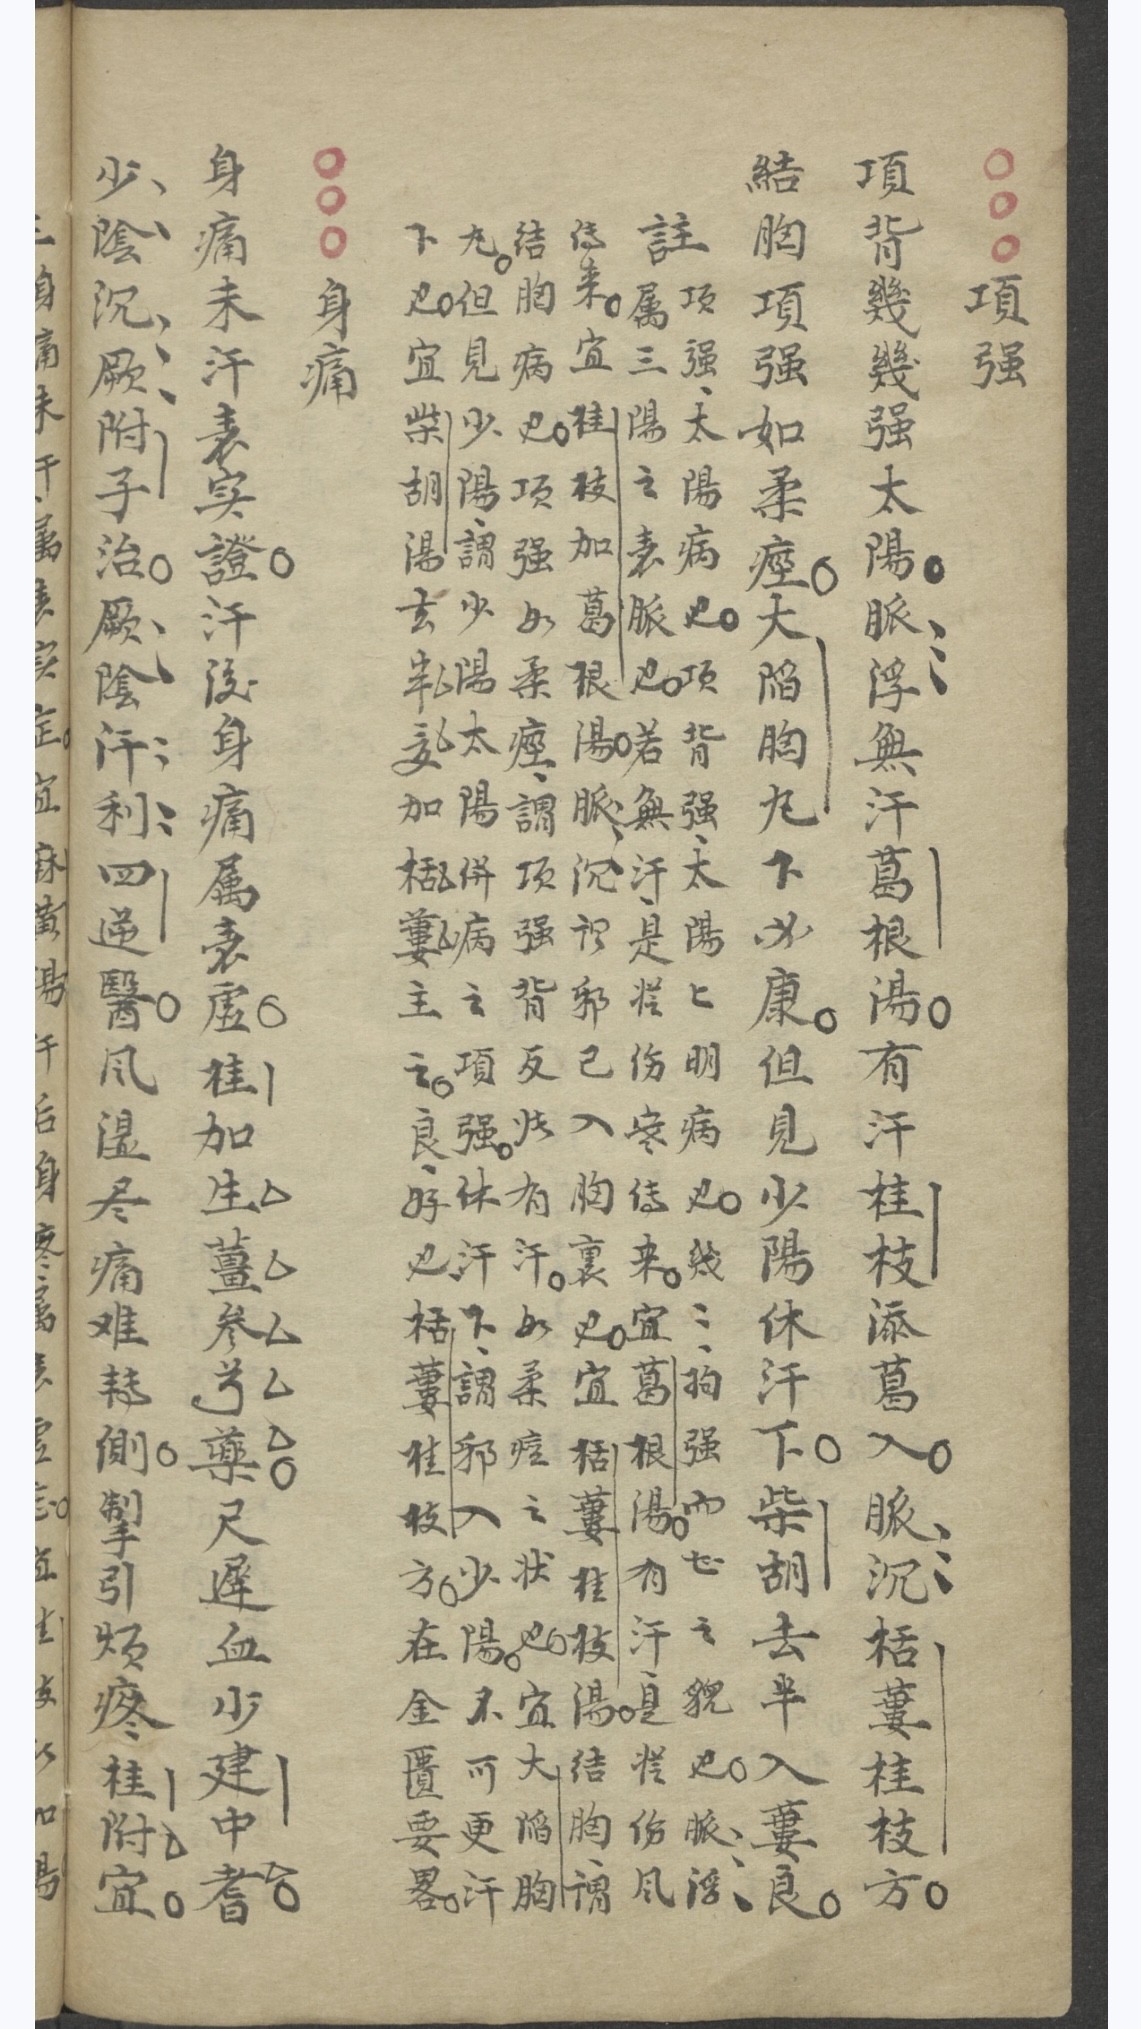 項强
項背幾幾强太陽脈浮無汗葛根湯有汗桂枝添葛入脈沉栝蔞桂枝方
結胸項强如柔痙大陷胸丸下必康但見少陽休汗下柴胡去半入蔞良
註
項强太陽病也項背强太陽阳明病也幾〻拘强而之貌也脈浮
属三陽之表脈也若無汗是從伤寒传来宜葛根湯有汗是從伤风
传来宜桂枝加葛根湯脈沉謂邪已入胸裏也宜栝蔞桂枝湯結胸謂
结胸病也项强如柔痙謂项强背反状有汗如柔痉之状也宜大陷胸
丸但見少陽謂少陽太陽併病之項强休汗下謂邪入少陽不可更汗
下也宜柴胡湯去半夏加栝蔞主之良好也栝蔞桂枝方在金匱要畧
身痛
身痛未汗表实證汗後身痛属表虛桂加生薑参芍藥尺遲血少建中耆
少陰沉厥附子治厥陰汗利四逆醫风湿尽痛难转側掣引烦疼桂附宜